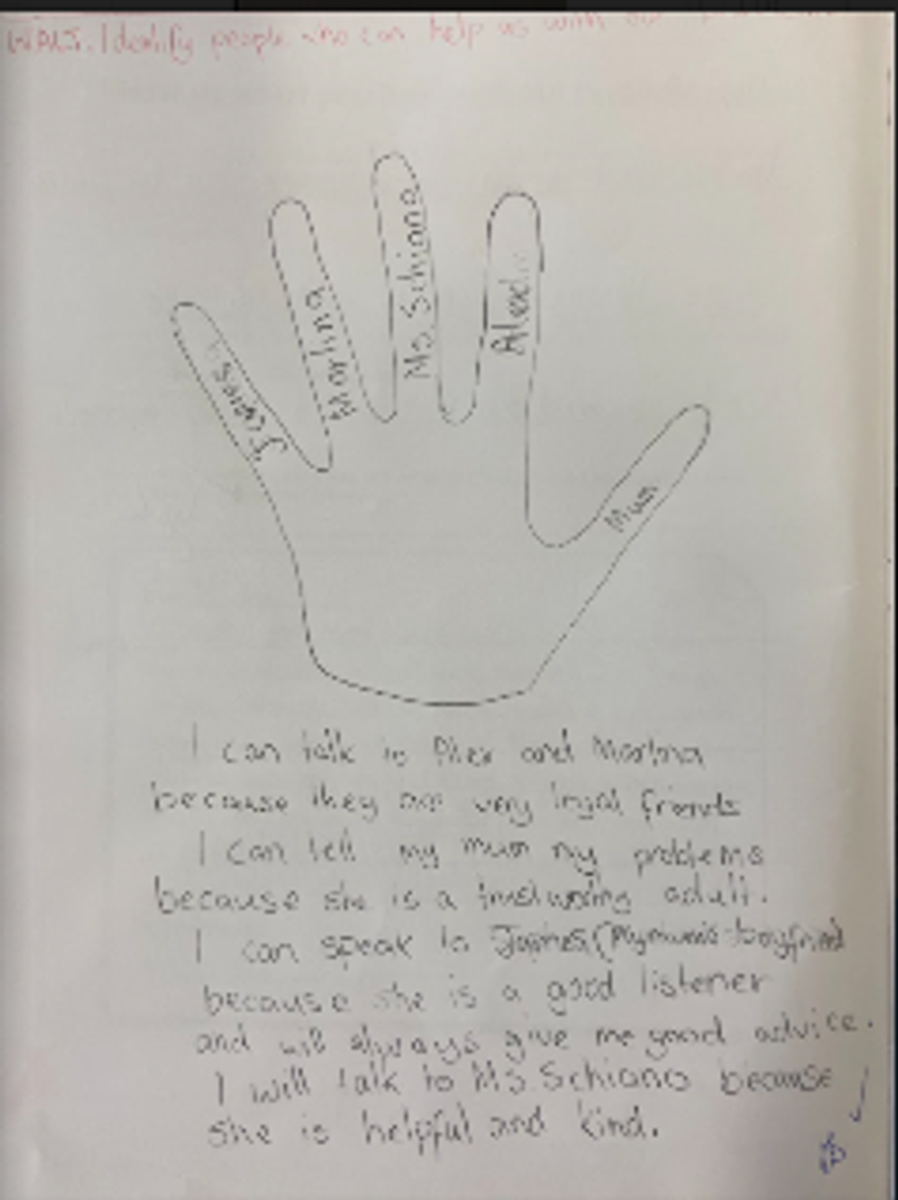 Identify people who can help us with our
Ms. Schiano
Marlina
Mum
I can talk to Alex and Marlina
because they are very loyal friends
I can tell my mum my problems
because she is a trustworthy adult.
I can speak to
because she is a good listener
and will always give me good advice.
I will talk to Ms. Schiano because
she is helpful and kind.